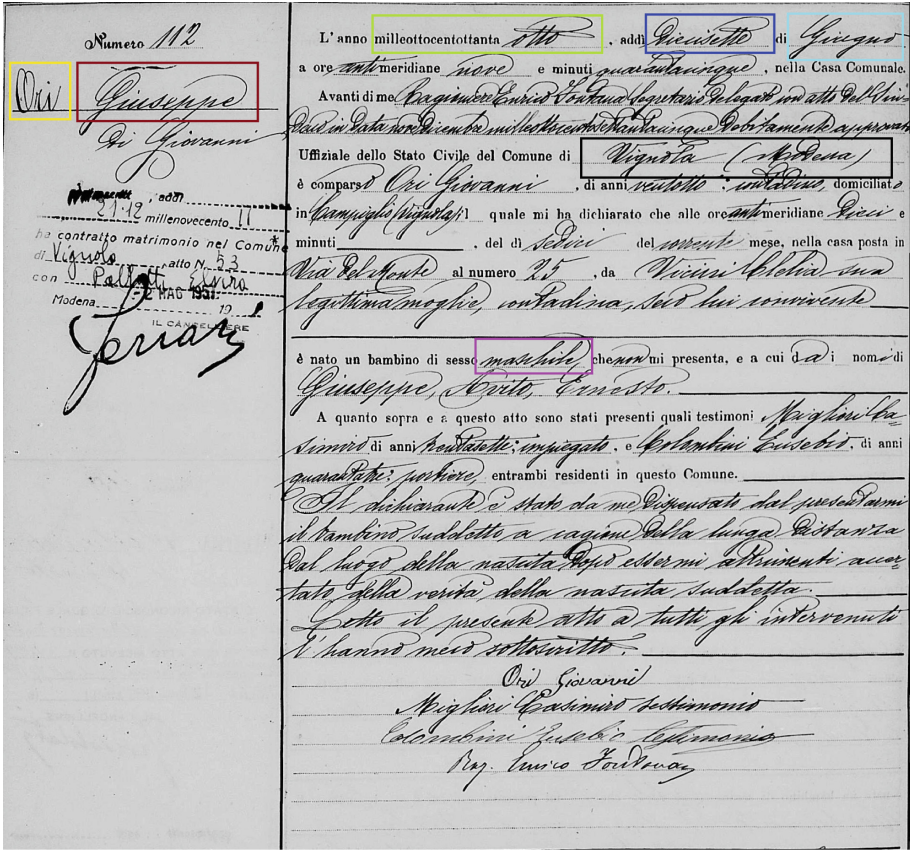 Numero 112
Ori Giuseppe
di Giovanni
, addì
21-12 millenovecento 11
ha contratto matrimonio nel Comune
di Vignola, atto N. 53
con Elvira
Modena 2 MAG 1951
19
IL CANCELLIERE
Ferrari
L'anno milleottocentottanta otto, addì diecisette di Giugno
a ore antimeridiane nove e minuti quarantacinque, nella Casa Comunale.
Avanti di me Ragioniere Enrico Fontana Segretario delegato con atto del Sin-
daco in data nove Dicembre milleottocentosettantacinque debitamente approvato
Uffiziale dello Stato Civile del Comune di Vignola (Modena)
è comparso Ori Giovanni, di anni ventotto: contadino, domiciliato
in Campiglio (Vignola) il quale mi ha dichiarato che alle ore antimeridiane dieci e
minuti , del dì sedici del corrente mese, nella casa posta in
Via del Monte al numero 25, da Vicini Clelia sua
legittima moglie, contadina, seco lui convivente
è nato un bambino di sesso maschile, che non mi presenta, e a cui dà i nomi di
Giuseppe, Avito, Ernesto.
A quanto sopra e a questo atto sono stati presenti quali testimoni Miglieri Ca-
simiro di anni trentasette: impiegato, e Colombini Eusebio, di anni
quarantatre: portiere, entrambi residenti in questo Comune.
Il dichiarante è stato da me dispensato dal presentarmi
il bambino suddetto a cagione della lunga distanza
dal luogo della nascita dopo essermi altrimenti accer-
tato della verità della nascita suddetta.
Letto il presente atto a tutti gli intervenuti
l'hanno meco sottoscritto.
Ori Giovanni
Miglieri Casimiro testimonio
Colombini Eusebio testimonio
Rag. Enrico Fontana